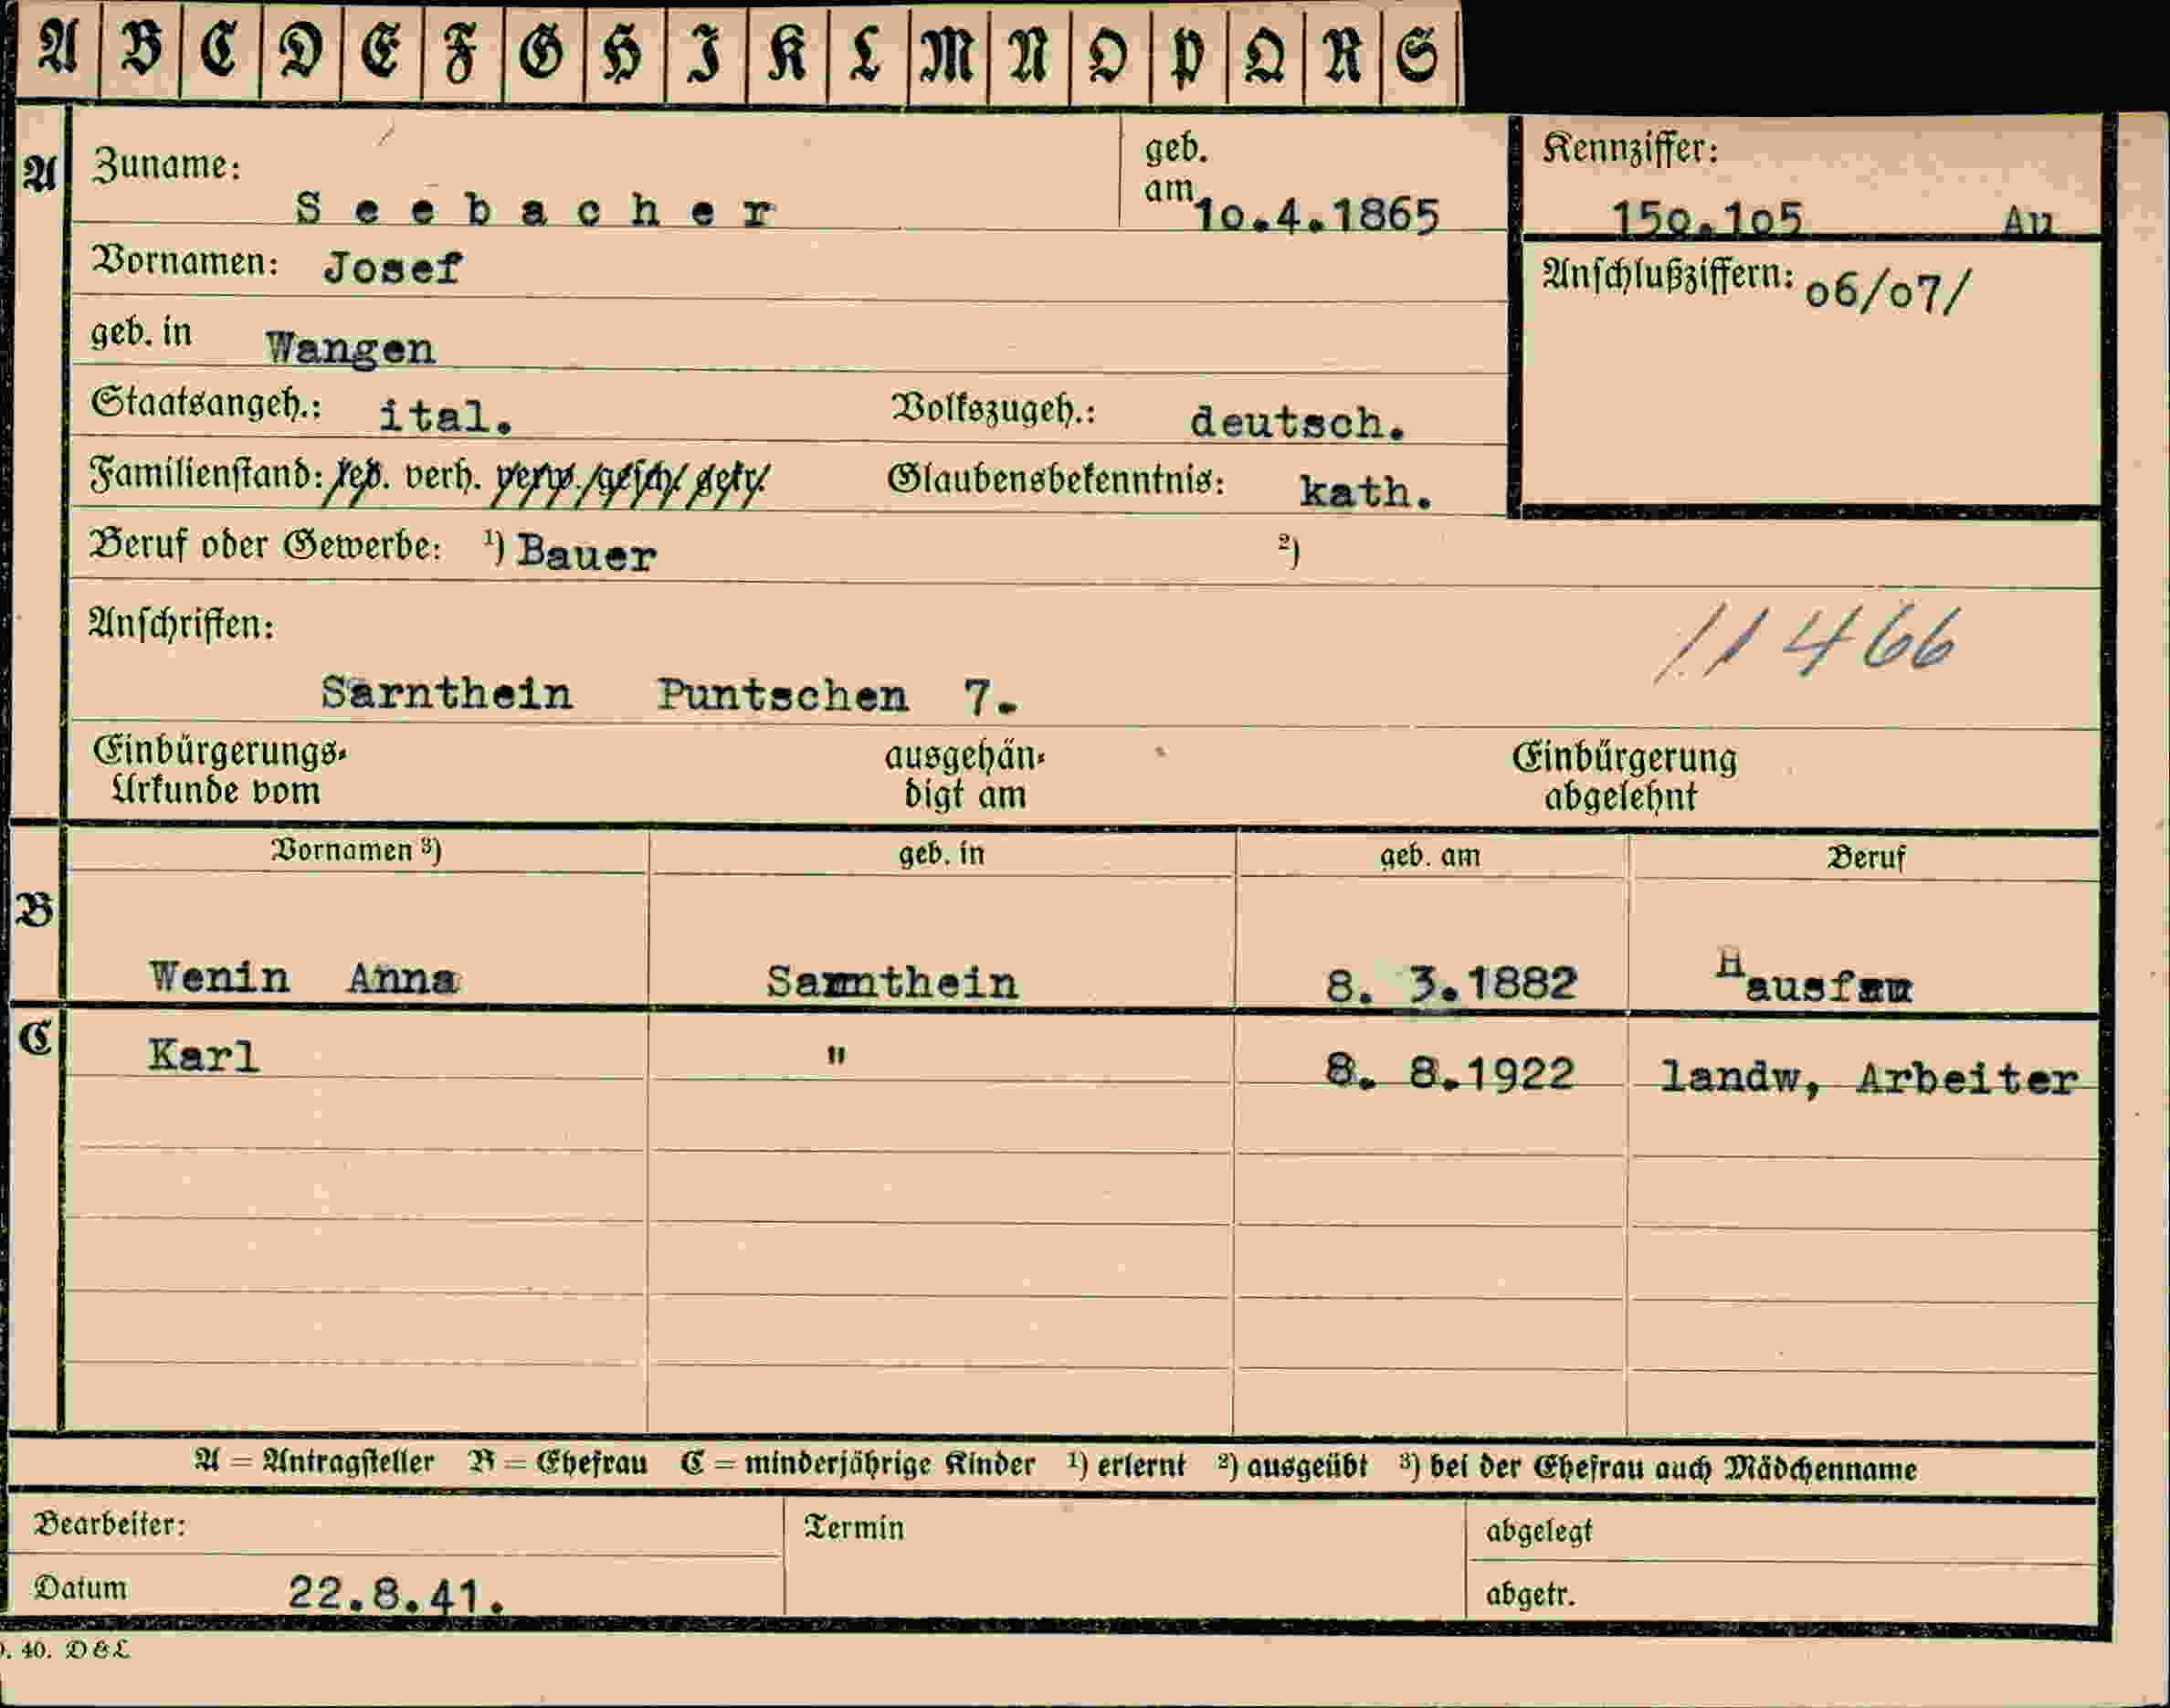 A B C D E F G H I K L M N O P Q R S
A Zuname: Seebacher geb. am 10.4.1865 Kennziffer: 150.105 An
Vornamen: Josef Anschlußziffern: 06/07/
geb. in Wangen
Staatsangeh.: ital. Volkszugeh.: deutsch.
Familienstand: led. verh. verw. gesch. getr. Glaubensbekenntnis: kath.
Beruf oder Gewerbe: ¹) Bauer ²)
Anschriften: 11466
Sarnthein Puntschen 7.
Einbürgerungs- ausgehän- Einbürgerung
Urkunde vom digt am abgelehnt
Vornamen ³) geb. in geb. am Beruf
B Wenin Anna Sarnthein 8. 3.1882 Hausfau
C Karl " 8. 8.1922 landw, Arbeiter
A = Antragsteller B = Ehefrau C = minderjährige Kinder ¹) erlernt ²) ausgeübt ³) bei der Ehefrau auch Mädchenname
Bearbeiter: Termin abgelegt
Datum 22.8.41. abgetr.
. 40. D&L